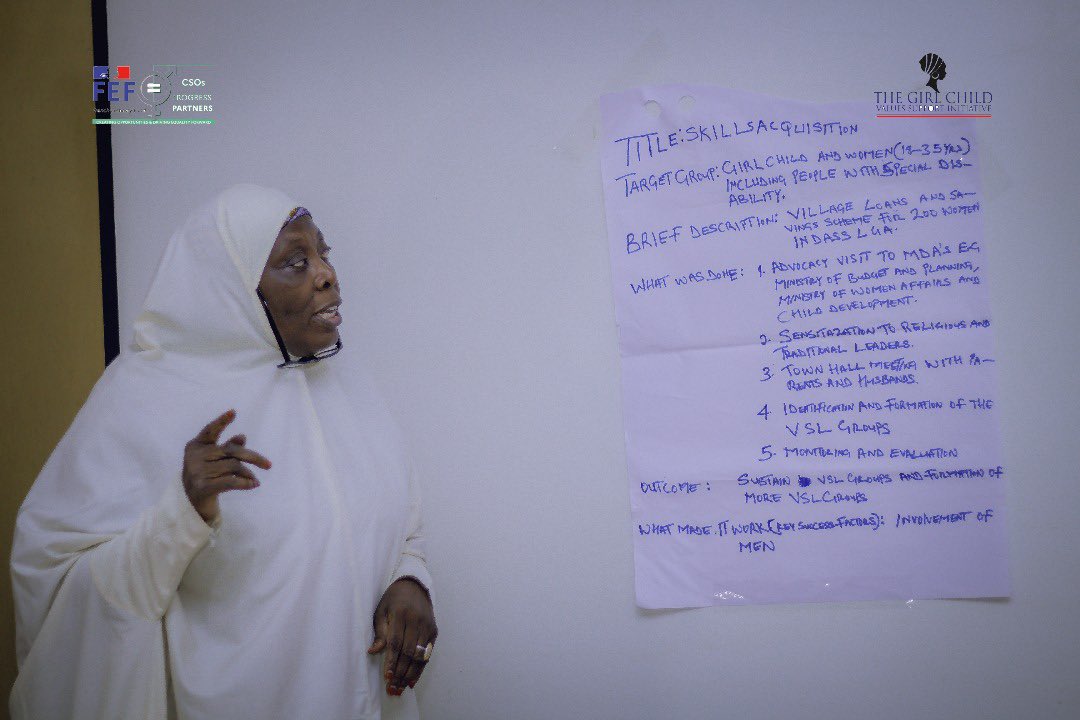 FEF
=
CSOs
ROGRESS
PARTNERS
CREATING OPPORTUNITIES & DRIVING EQUALITY FORWARD
THE GIRL CHILD
VALUES SUPPORT INITIATIVE
TITLE: SKILLS ACQUISITION
TARGET GROUP: GIRL CHILD AND WOMEN (18-35 YRS)
INCLUDING PEOPLE WITH SPECIAL DIS-
ABILITY.
BRIEF DESCRIPTION: VILLAGE LOANS AND SA-
VINGS SCHEME FOR 200 WOMEN
IN DASS LGA.
WHAT WAS DONE: 1. ADVOCACY VISIT TO MDA'S E.G
MINISTRY OF BUDGET AND PLANNING,
MINISTRY OF WOMEN AFFAIRS AND
CHILD DEVELOPMENT.
2. SENSITAZATION TO RELIGIOUS AND
TRADITIONAL LEADERS.
3. TOWN HALL MEETING WITH PA-
RENTS AND HUSBANDS.
4 IDENTIFICATION AND FORMATION OF THE
VSL GROUPS
5. MONITORING AND EVALUATION
OUTCOME: SUSTAIN VSL GROUPS AND FORMATION OF
MORE VSL GROUPS
WHAT MADE IT WORK (KEY SUCCESS FACTORS): INVOLVEMENT OF
MEN